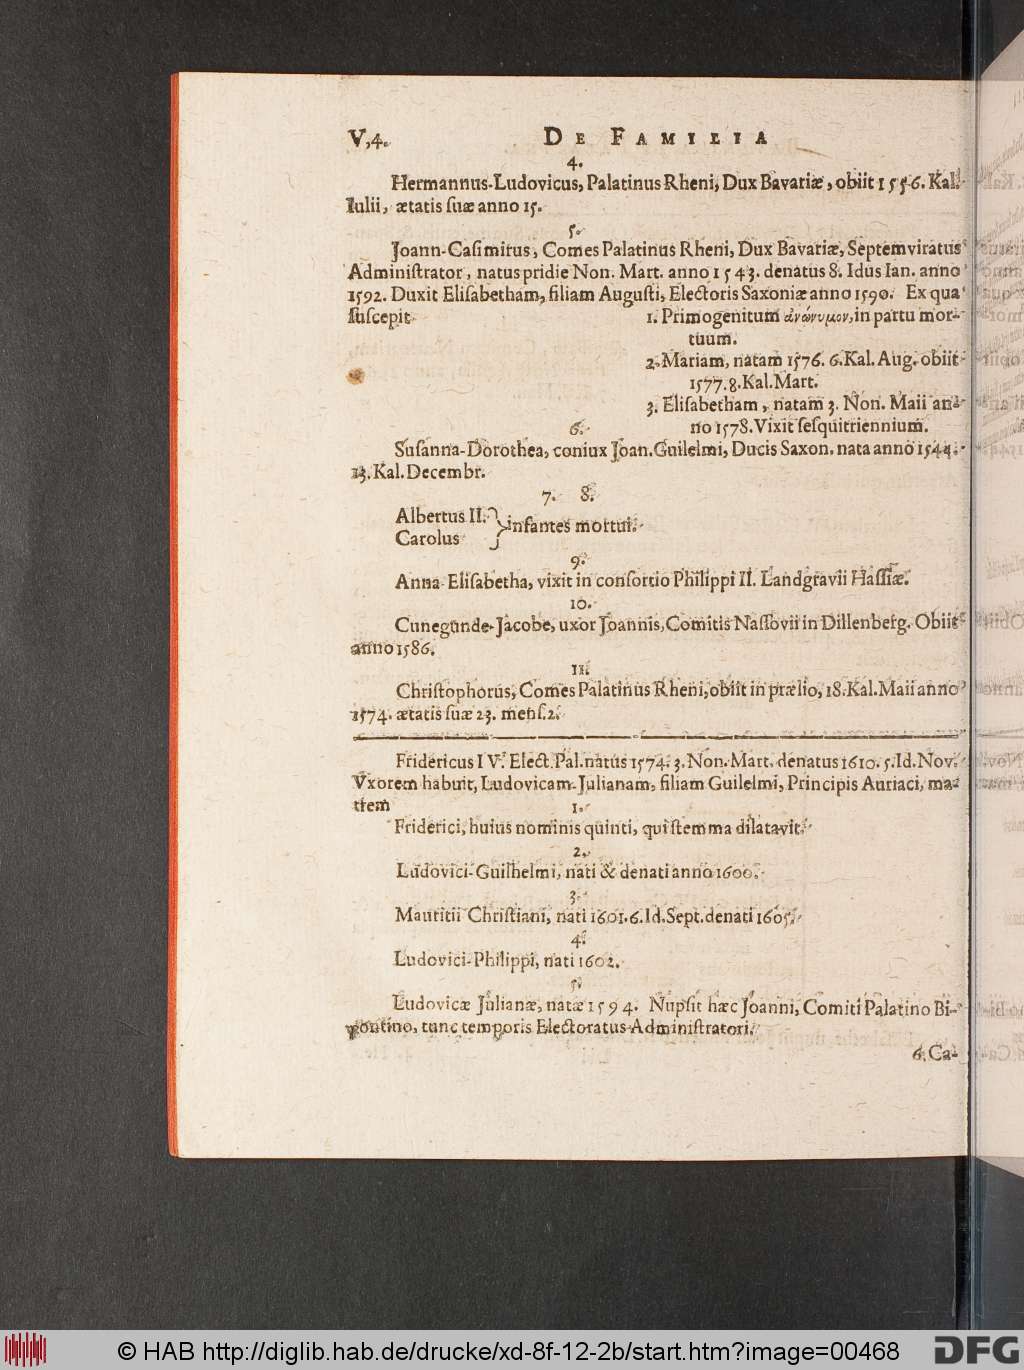 V,4. DE FAMILIA
4.
Hermannus-Ludovicus, Palatinus Rheni, Dux Bavariæ, obiit 1556. Kal.
Iulii, ætatis ſuæ anno 15.
5.
Joann-Caſimirus, Comes Palatinus Rheni, Dux Bavariæ, Septemviratus
Adminiſtrator, natus pridie Non. Mart. anno 1543. denatus 8. Idus Ian. anno
1592. Duxit Eliſabetham, filiam Auguſti, Electoris Saxoniæ anno 1590. Ex qua
ſuſcepit 1. Primogenitum ἀνώνυμον, in partu mor-
tuum.
2. Mariam, natam 1576. 6. Kal. Aug. obiit
1577. 8. Kal. Mart.
3. Eliſabetham, natam 3. Non. Maii an-
no 1578. Vixit ſeſquitriennium.
6.
Suſanna-Dorothea, coniux Joan. Guilelmi, Ducis Saxon. nata anno 1544.
13. Kal. Decembr.
7. 8.
Albertus II.
Carolus } infantes mortui.
9.
Anna Eliſabetha, vixit in conſortio Philippi II. Landgravii Haſſiæ.
10.
Cunegunde-Jacobe, uxor Joannis, Comitis Naſſovii in Dillenberg. Obiit
anno 1586.
11.
Chriſtophorus, Comes Palatinus Rheni, obiit in prælio, 18. Kal. Maii anno
1574. ætatis ſuæ 23. menſ. 2.
Fridericus IV. Elect. Pal. natus 1574. 3. Non. Mart. denatus 1610. 5. Id. Nov.
Vxorem habuit, Ludovicam-Julianam, filiam Guilelmi, Principis Auriaci, ma-
trem
1.
Friderici, huius nominis quinti, qui ſtemma dilatavit.
2.
Ludovici-Guilhelmi, nati & denati anno 1600.
3.
Mauritii Chriſtiani, nati 1601. 6. Id. Sept. denati 1605.
4.
Ludovici-Philippi, nati 1602.
5.
Ludovicæ Julianæ, natæ 1594. Nupſit hæc Joanni, Comiti Palatino Bi-
pontino, tunc temporis Electoratus Adminiſtratori.
6. Ca-
© HAB http://diglib.hab.de/drucke/xd-8f-12-2b/start.htm?image=00468
DFG